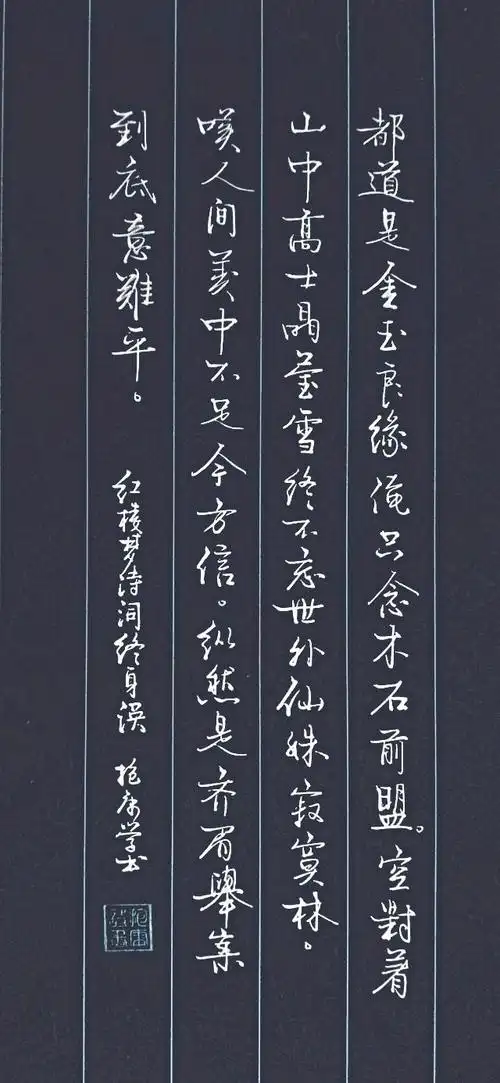 都道是金玉良缘俺只念木石前盟。空對着
山中高士晶莹雪终不忘世外仙姝寂寞林。
嘆人间美中不足今方信。纵然是齐眉舉案
到底意難平。
红楼梦诗词终身误 抱 学书